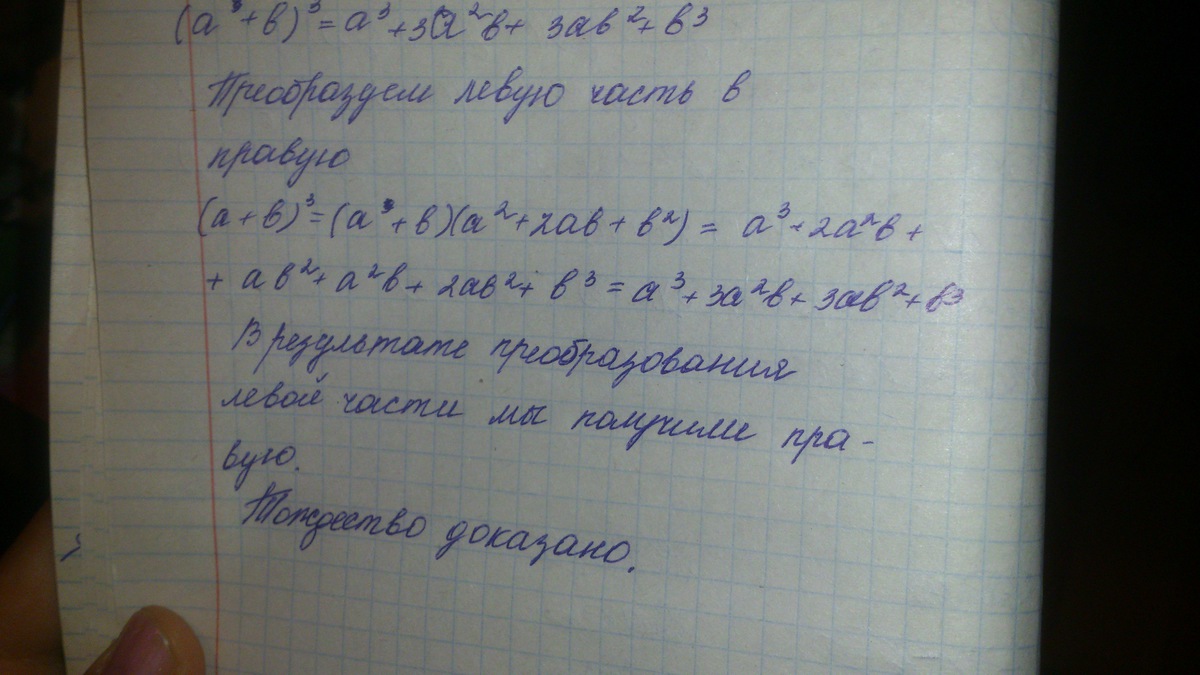 (а³+в)³=а³+3а²в+ 3ав²+в³
Преобразуем левую часть в
правую
(а+в)³=(а³+в)(а²+2ав+в²)= а³+2а²в+
+ ав²+а²в+2ав²+в³=а³+3а²в+3ав²+в³
В результате преобразования
левой части мы получили пра-
вую.
Тождество доказано.